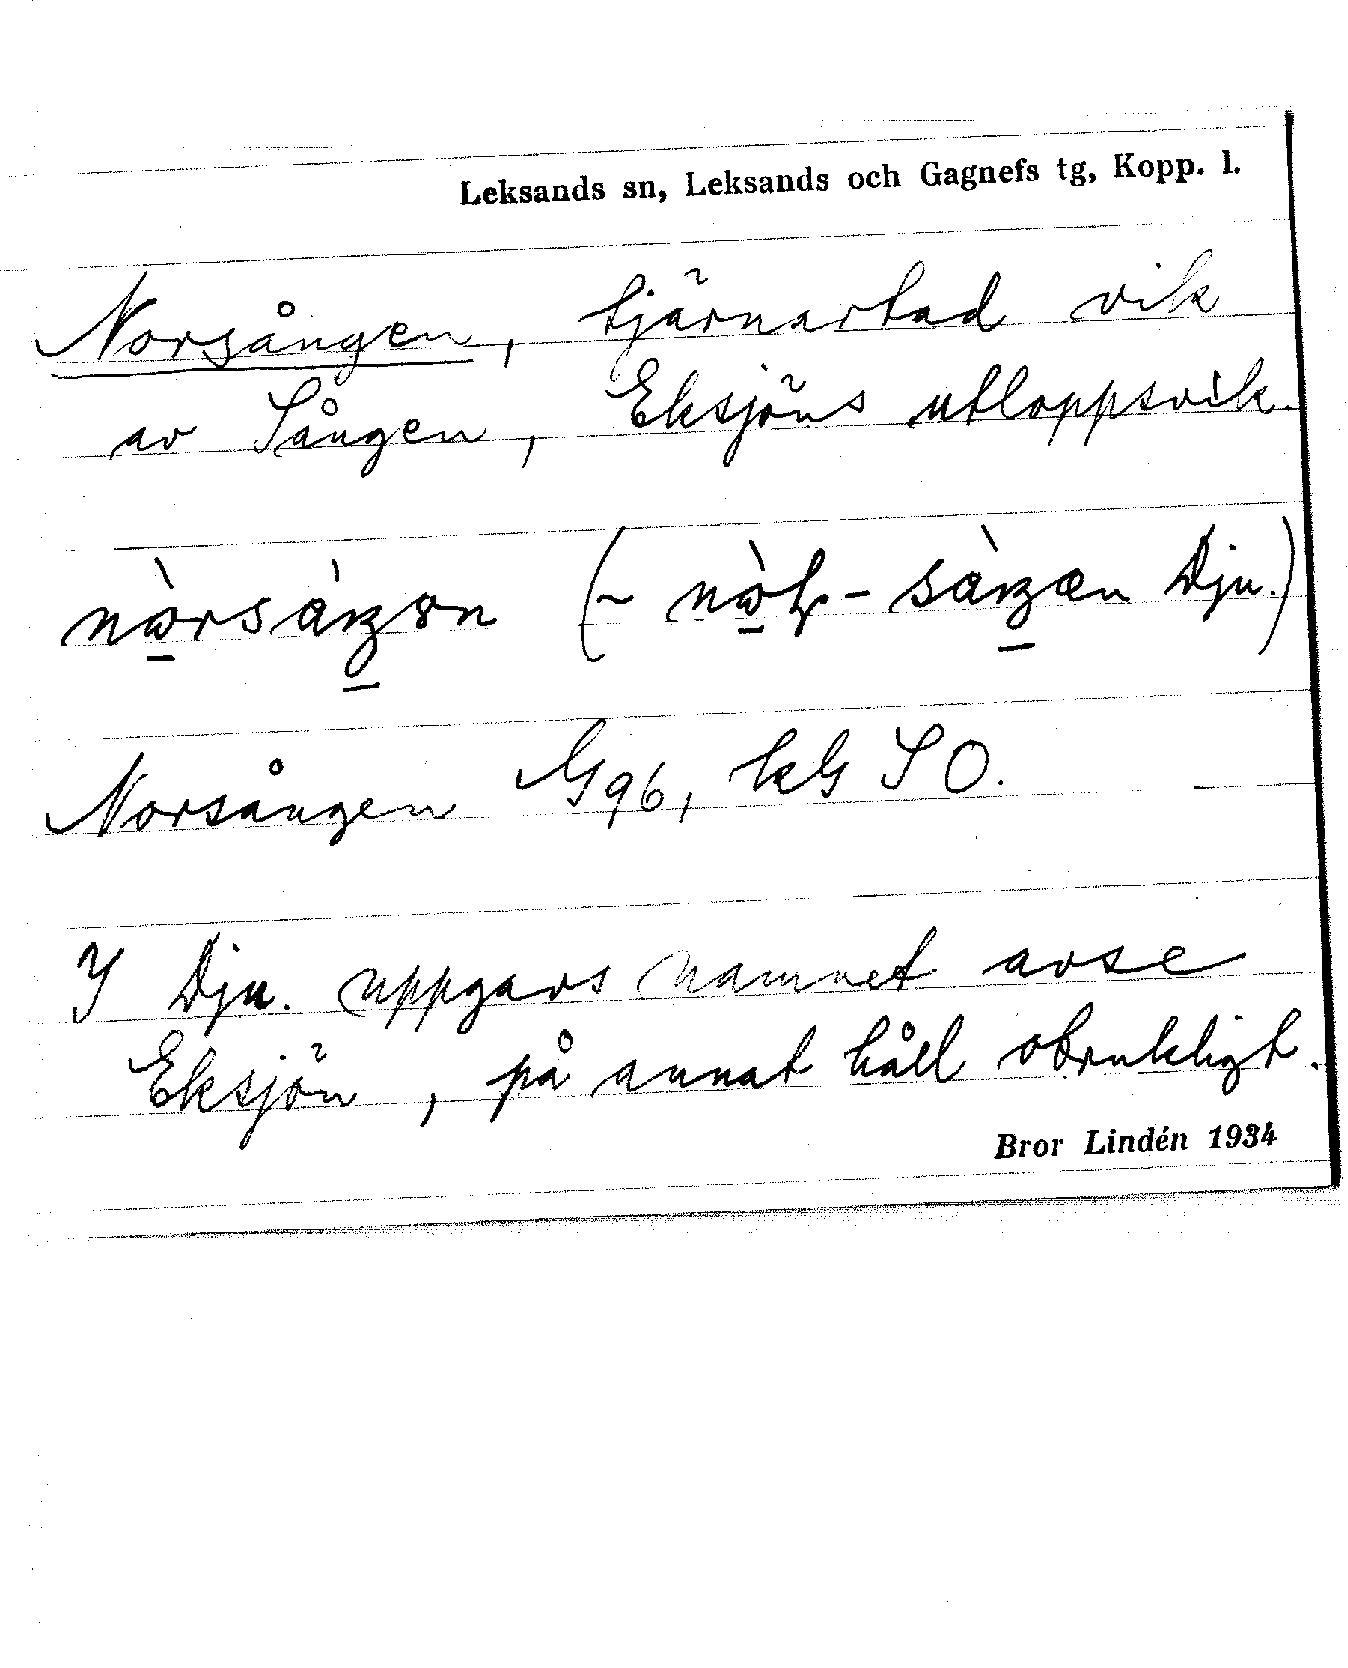 Leksands sn, Leksands och Gagnefs tg, Kopp. l.
Norsången, tjärnartad vik
av Sången, Eksjöns utloppsvik.
(~ Dju.)
Norsången G96, kG SO.
I Dju. uppgavs namnet avse
Eksjön, på annat håll obrukligt.
Bror Lindén 1934